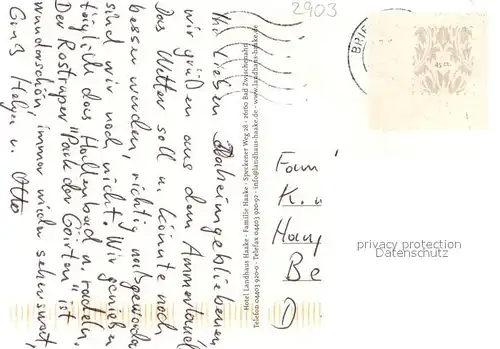 Ihr lieben Daheimgebliebenen
wir grüßen aus dem Ammerland.
Das Wetter soll u. könnte noch
besser werden, richtig naßgeworden
sind wir noch nicht. Wir genießen
täglich das Hallenbad u. radeln.
Der Rostruper "Park der Gärten" ist
wunderschön, immer wieder sehenswert,
Gruß Helga u. Otto
Hotel Landhaus Haake · Familie Haake · Speckener Weg 28 · 26160 Bad Zwischenahn
Telefon 04403 920-0 · Telefax 04403 920-92 · info@landhaus-haake.de · www.landhaus-haake.de
2903
BRIE
45 ct.
Fam
K. u
Han
Be
D
privacy protection
Datenschutz